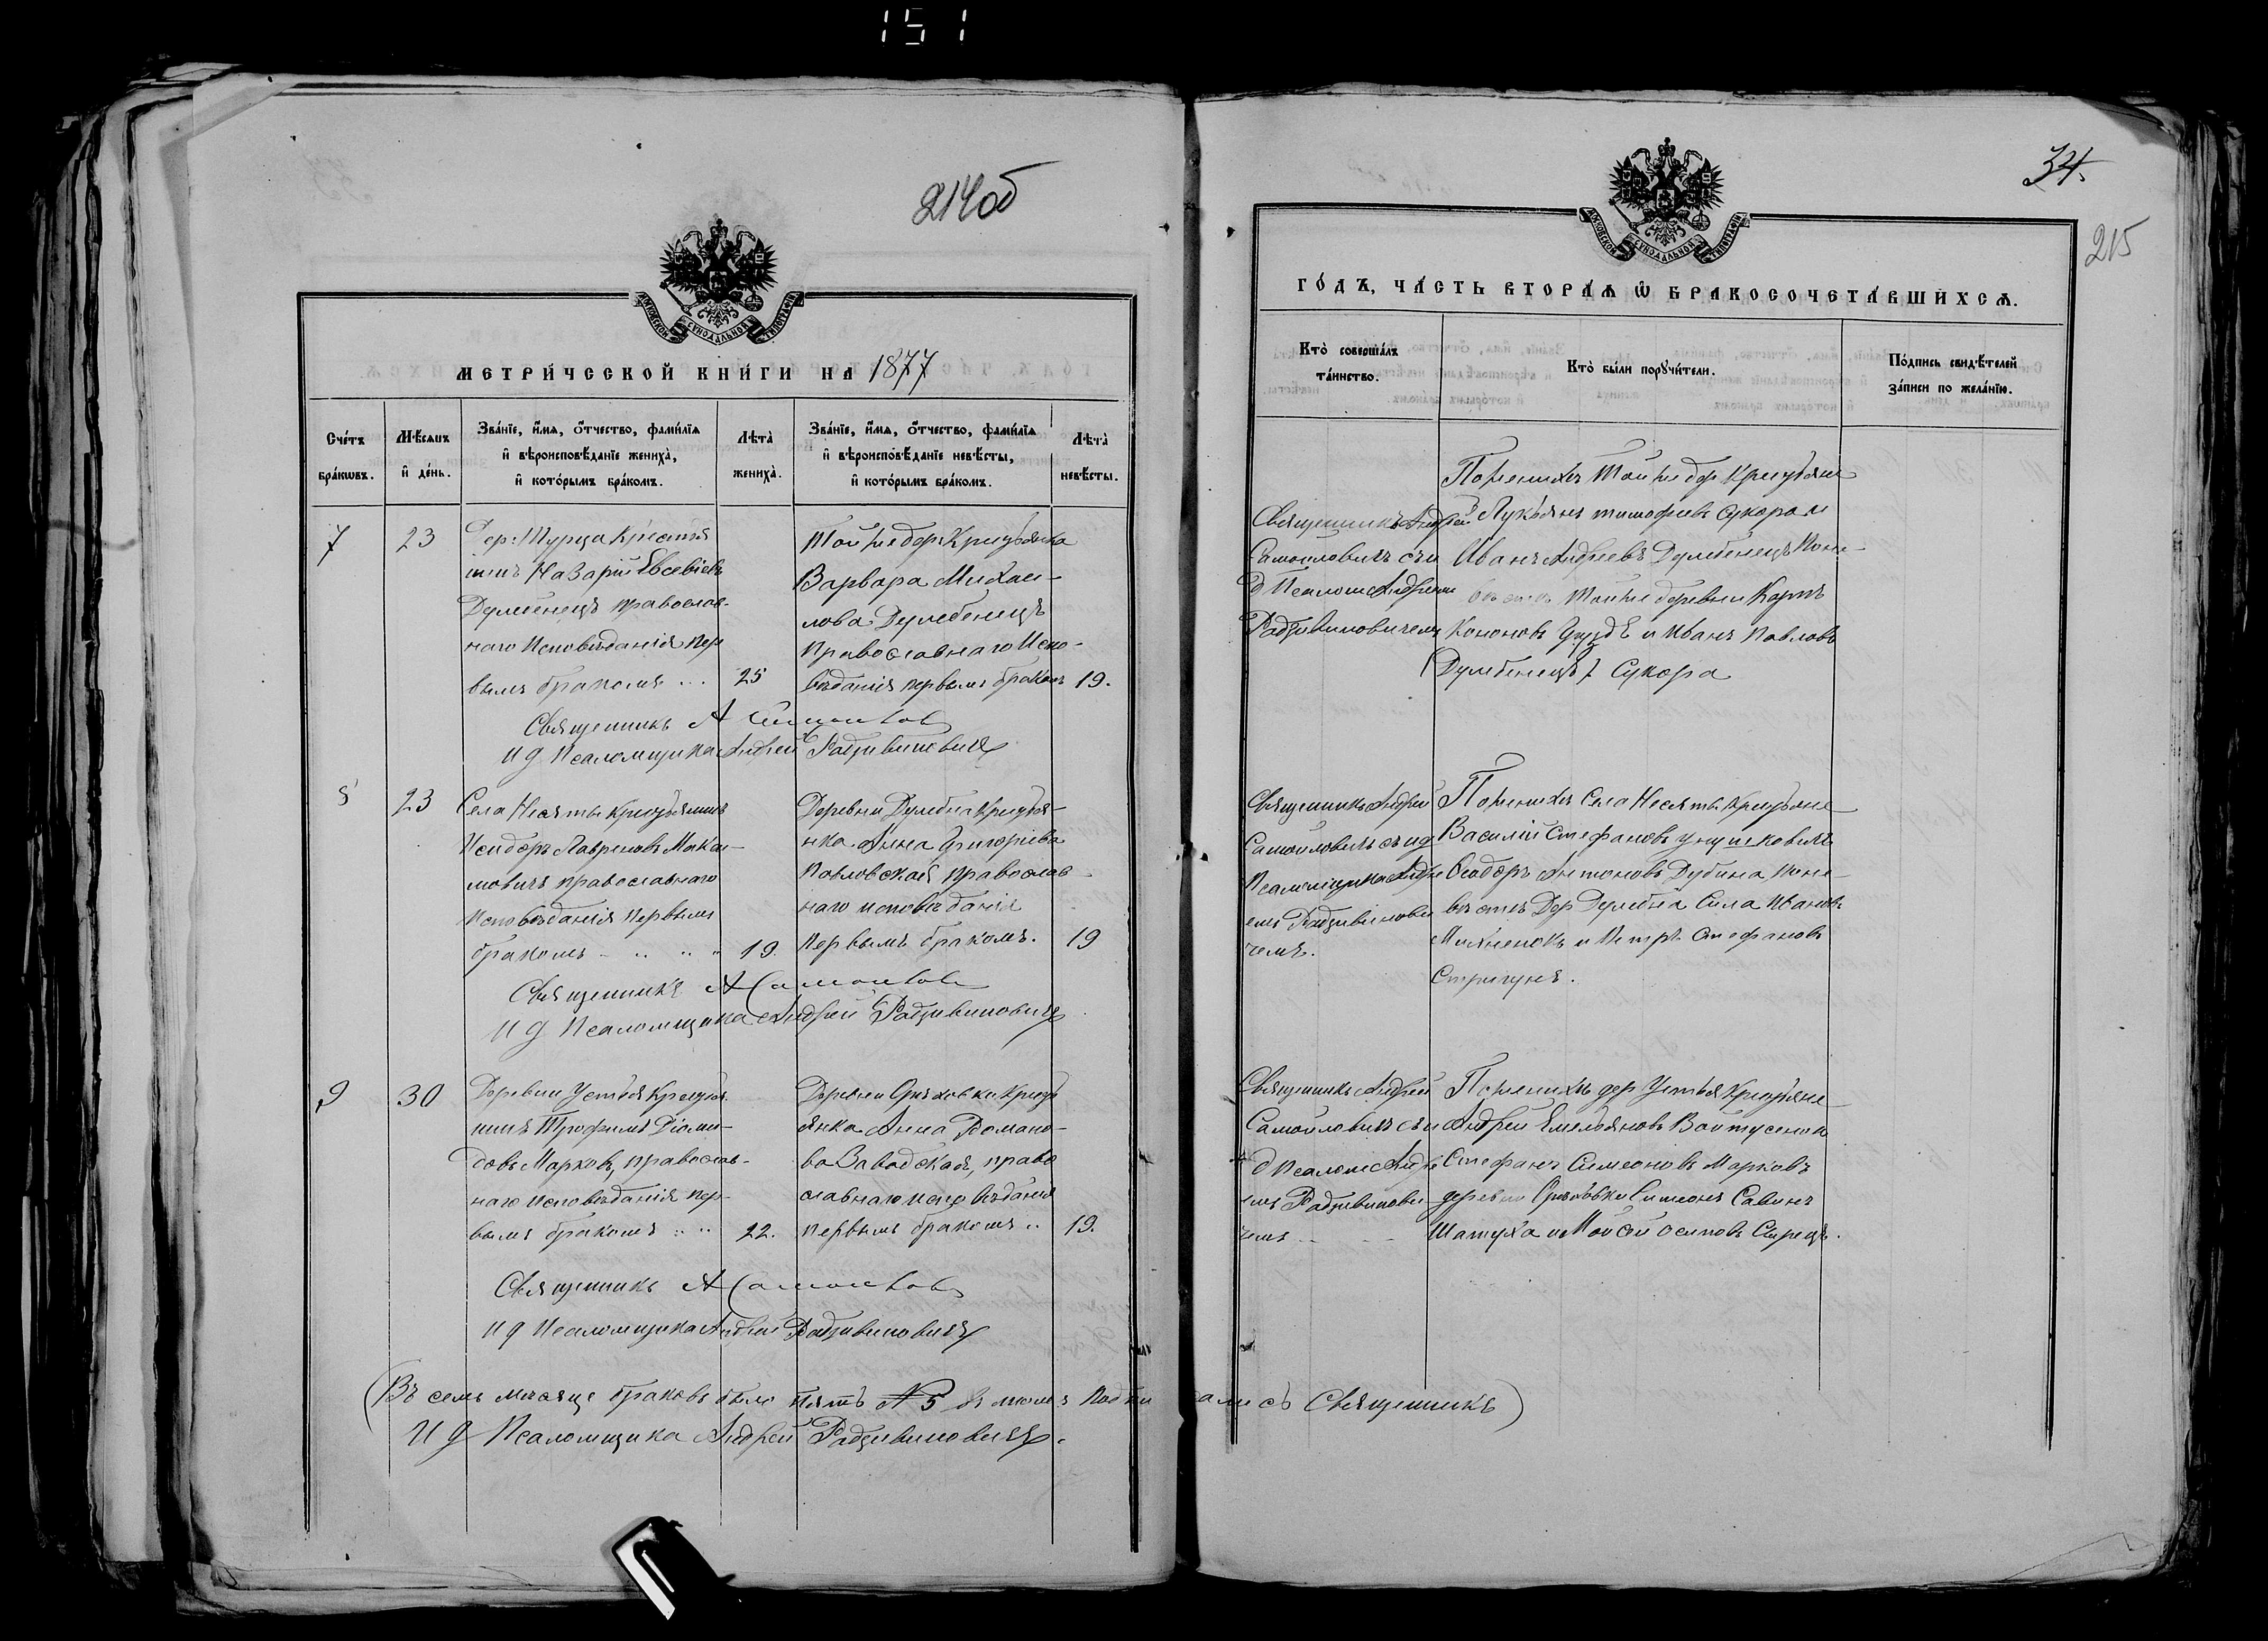 151
214об
МОСКОВСКОЙ СУНОДАЛЬНОЙ ТИПОГРАФІИ
МЕТРИ́ЧЕСКОЙ КНИ́ГИ НА 1877
Сче́тъ бра́кѡвъ.
Мѣ́сѧцъ и҆ де́нь.
Зва́нїе, и҆́мѧ, ѻ҆́тчество, фами́лїѧ
и҆ вѣроисповѣ́данїе жениха̀,
и҆ кото́рымъ бра́комъ.
Лѣта̀ жениха̀.
Зва́нїе, и҆́мѧ, ѻ҆́тчество, фами́лїѧ
и҆ вѣроисповѣ́данїе невѣ́сты,
и҆ кото́рымъ бра́комъ.
Лѣта̀ невѣ́сты.
7
23
Дер: Турца Крестья
нинъ Назарій Евсевіевъ
Дулебенецъ православ-
наго Исповѣданія пер
вымъ бракомъ ... 25
Той же дер Крестьянка
Варвара Михаи-
лова Дулебенецъ
Православнаго Испо-
вѣданія первымъ бракомъ 19.
Священникъ А
И д Псаломщика Андрей Радзивиновичъ
8
23
Села Несяты Крестьянинъ
Исидоръ Лавреновъ Мака-
мовичъ православнаго
Исповѣданія первымъ
бракомъ 19.
Деревни Дулебна Крестья-
нка Анна Григоріева
Павловская православ-
наго исповѣданія
первымъ бракомъ. 19
Священникъ А
И д Псаломщика Андрей Радзивиновичъ
9
30
Деревни Устья Крестья
нинъ Трофимъ Діоми-
довъ Марковъ, православ-
наго исповѣданія пер-
вымъ бракомъ 22.
Деревни Орѣховки Кресть
янка Анна Романо-
ва Завадская, право
славнаго исповѣданія
первымъ бракомъ 19.
Священникъ А
И д Псаломщика Андрей Радзивиновичъ
(Въ семъ мѣсяце браковъ было пять № 5 въ томъ Подписались Священникъ)
И д Псаломщика Андрей Радзивиновичъ.
34.
215
МОСКОВСКОЙ СУНОДАЛЬНОЙ ТИПОГРАФІИ
ГО́ДЪ, ЧА́СТЬ ВТОРА́Ѧ Ѡ҆ БРАКОСОЧЕТА́ВШИХСѦ.
Кто̀ соверша́лъ та́инство.
Кто̀ бы́ли порꙋчи́тели.
По́дпись свидѣ́телей за́писи по жела́нїю.
Священникъ Андрей
Самойловичъ съ и
д Псаломщ Андреем
Радзивиновичемъ
По женихѣ той же дер Крестьяне
Лукьянъ Тимофеевъ Сукора и
Иванъ Андреевъ Дулебенецъ По не-
вѣстѣ той же деревни Карпъ
Кононовъ Груздъ и Иванъ Павловъ
(Дулебенецъ) Сукора
Священникъ Андрей
Самойловичъ съ и д
Псаломщика Андре
емъ Радзивинови
чемъ.
По женихѣ Села Несяты Крестьяне
Василій Стефановъ
Феодоръ Антоновъ Дубина По не-
вѣстѣ Дер Дулебна Сила Ивановъ
Михненокъ и Петръ Стефановъ
Стригунъ.
Священникъ Андрей
Самойловичъ съ и
д Псаломщ Андре
емъ Радзивинови
чемъ
По женихѣ дер Устья Крестьяне
Андрей Емельяновъ Войтусенок
Стефанъ Симеоновъ Марковъ
деревни Орѣховки Симеонъ Савинъ
Шатуха и Мойсей Осиповъ Сырецъ.